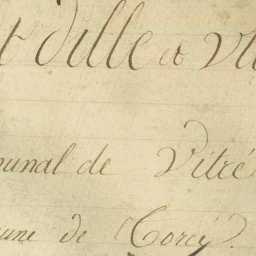 t Dille et V
bunal de Vitré
une de Torcé.